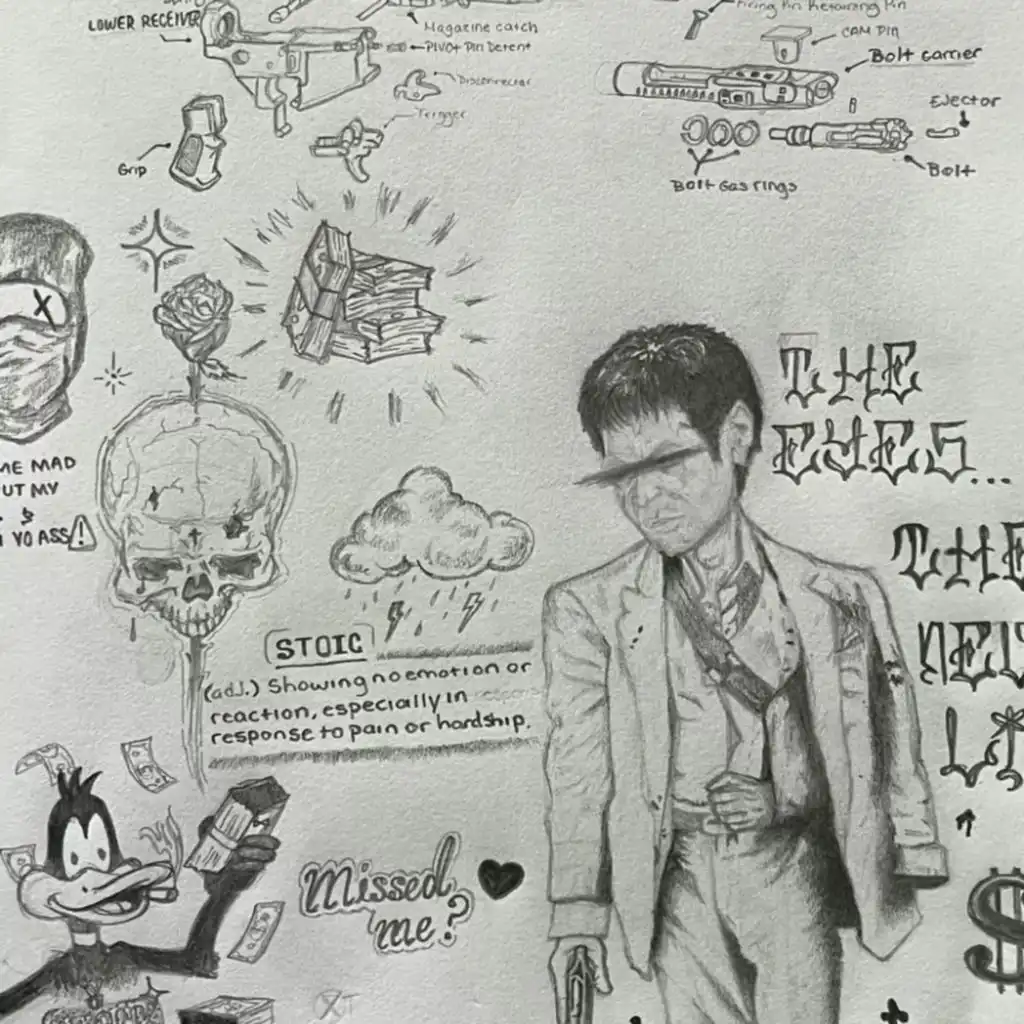 LOWER RECEIVER
Magazine catch
PIVOT Pin Detent
Disconnector
Trigger
Grip
Firing Pin Retaining Pin
CAM PIN
Bolt carrier
Ejector
Bolt
Bolt Gas rings
ME MAD
UT MY
YO ASS
STOIC
(adJ.) Showing no emotion or
reaction, especially in
response to pain or hardship.
THE
EYES...
THE
Missed
me?
$